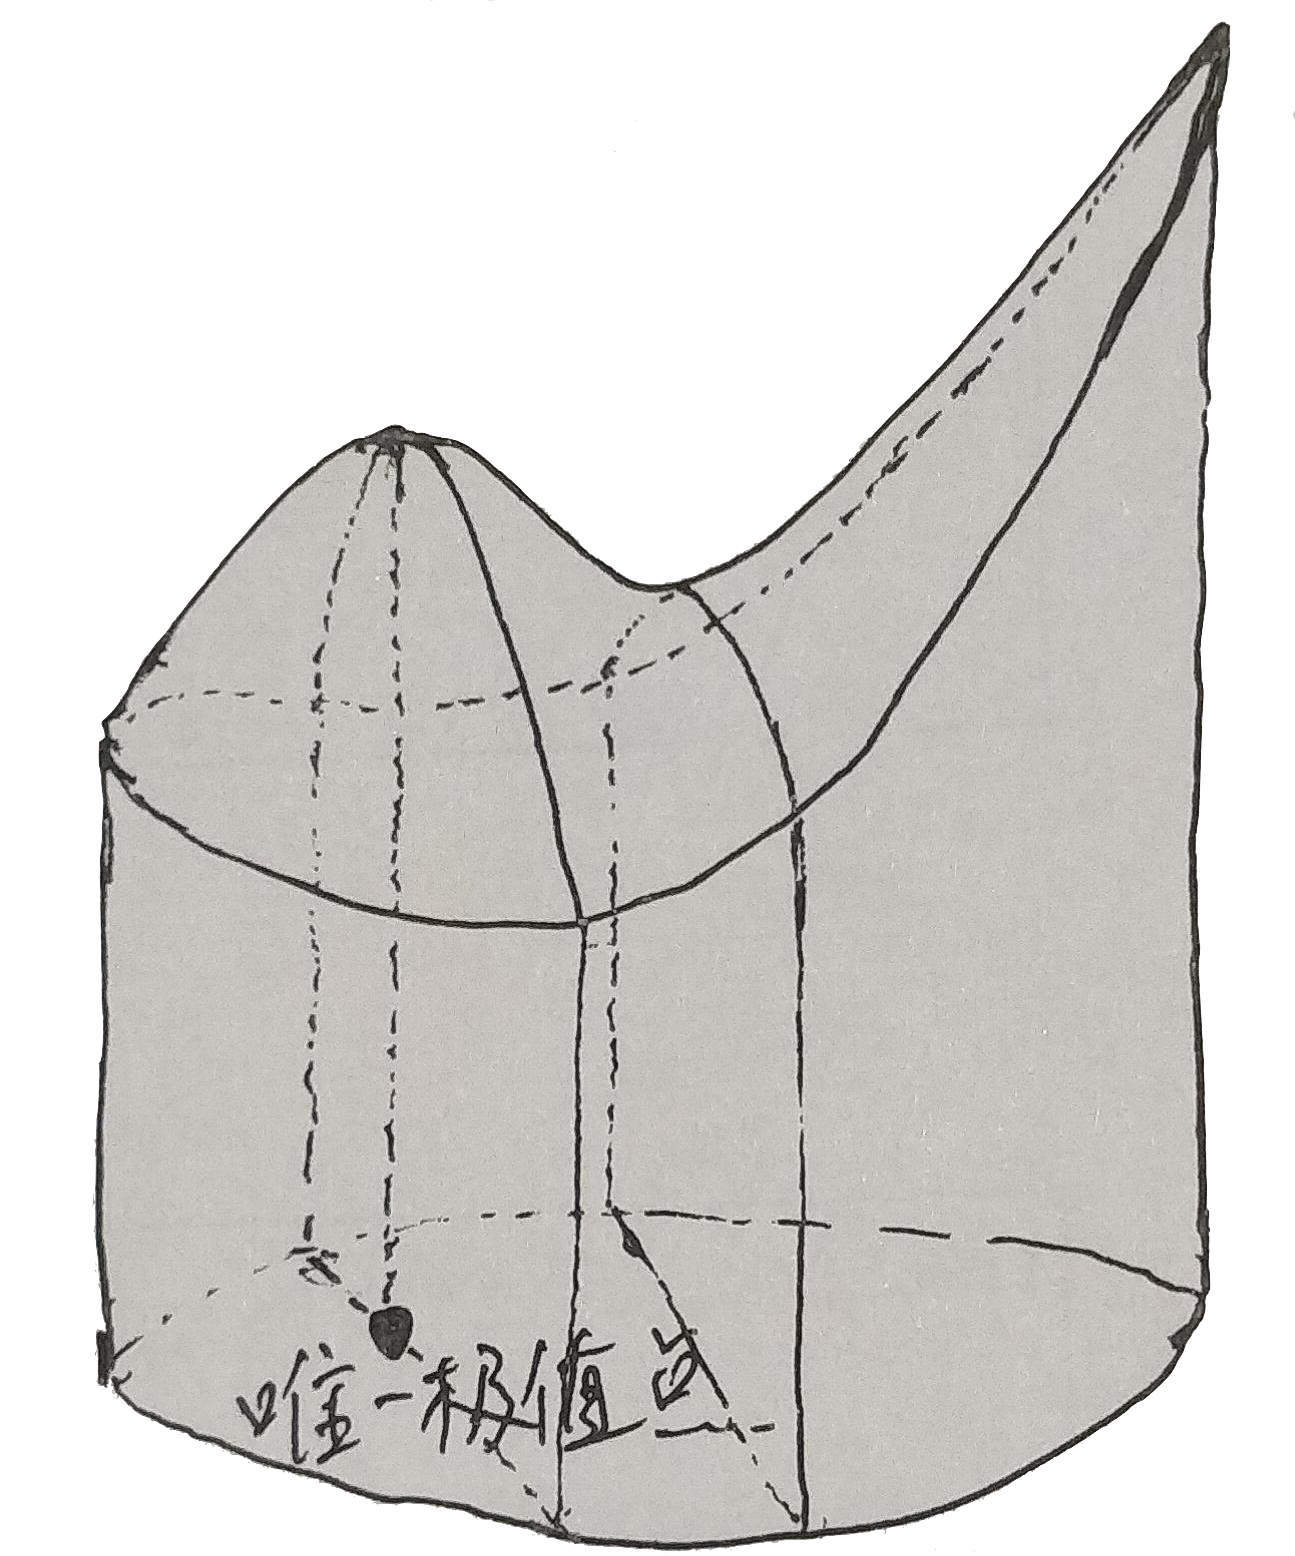 唯一极值点